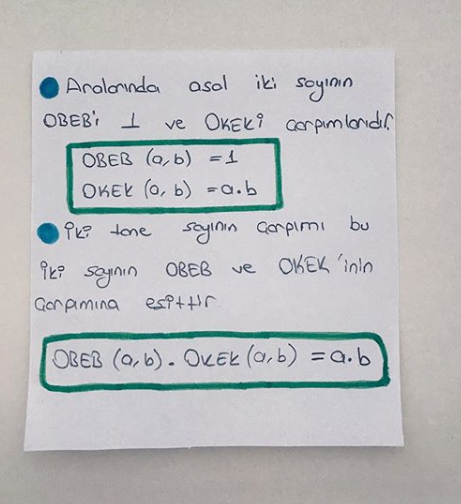 Aralarında asal iki sayının
OBEB'i 1 ve OKEKİ çarpımlarıdır.
OBEB (a,b) = 1
OKEK (a,b) = a.b
İki tane sayının çarpımı bu
iki sayının OBEB ve OKEK'inin
çarpımına eşittir.
OBEB (a,b) . OKEK (a,b) = a.b